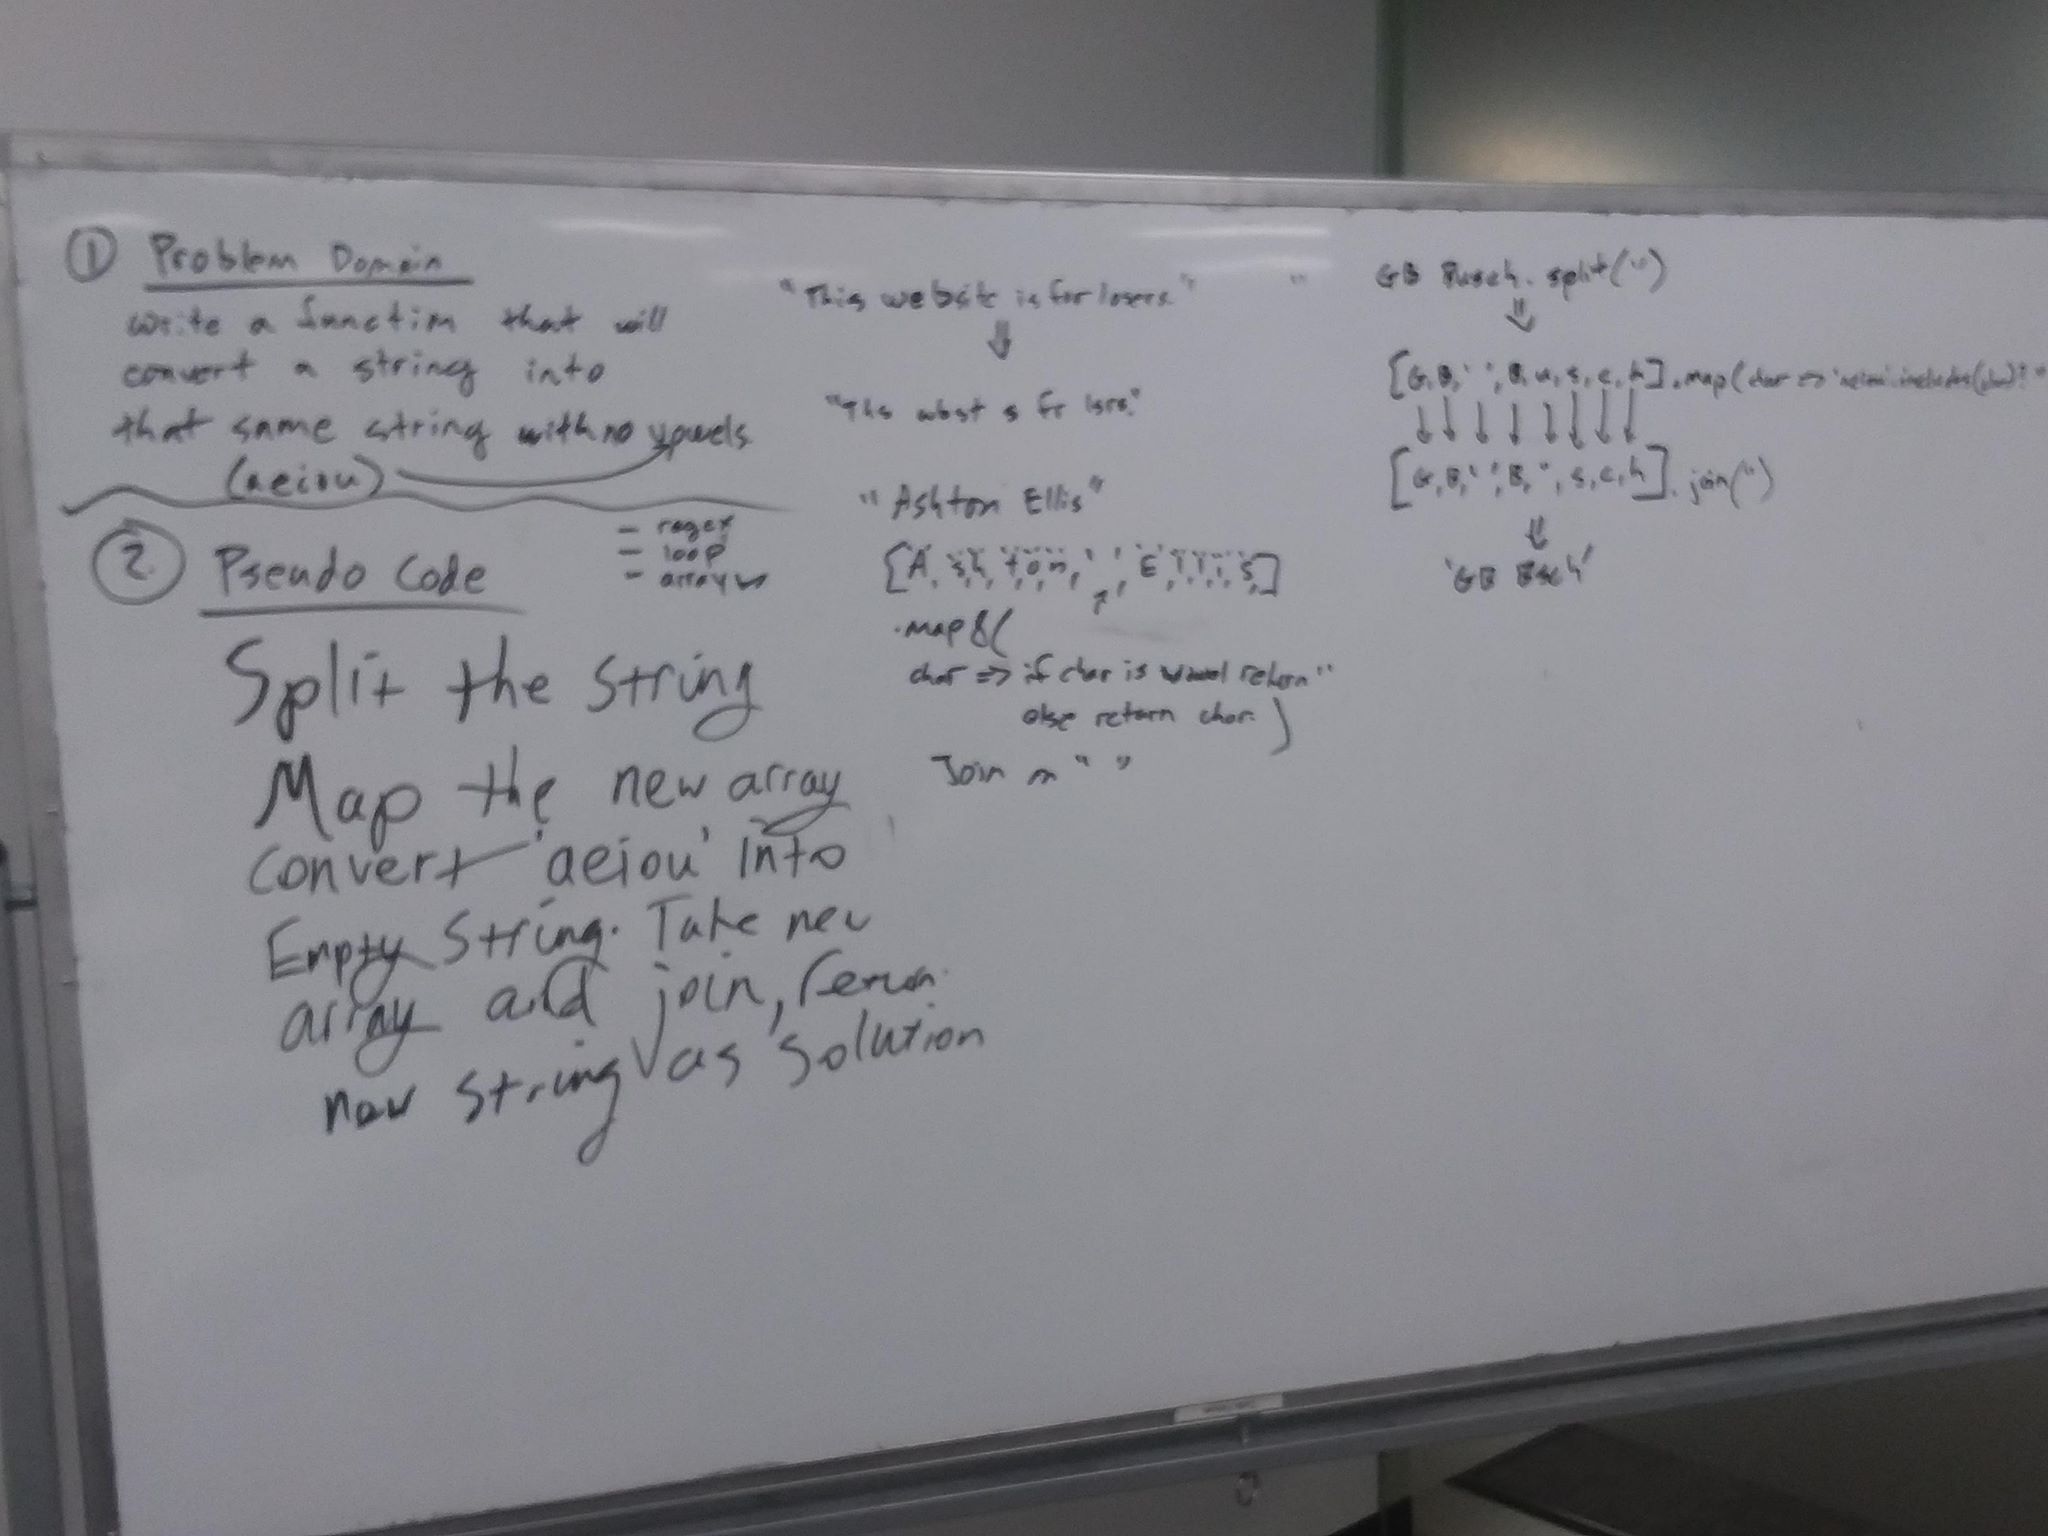 ① Problem Domain
write a function that will
convert a string into
that same string with no vowels
(aeiou)
② Pseudo Code
- regex
- loop
- array
Split the string
Map the new array
convert 'aeiou' into
Empty String. Take new
array and join,
new string as solution
"This website is for losers."
⇓
"Ths wbst s fr lsrs."
"Ashton Ellis"
['A','s','h','t','o','n',' ','E','l','l','i','s']
.map(
char => if char is vowel return ''
else return char. )
Join " "
GB Busch.split('')
⇓
[G,B,' ',B,u,s,c,h].map(char => 'aeiou'.includes(char)? ''
↓ ↓ ↓ ↓ ↓ ↓ ↓ ↓
[G,B,' ',B,'',s,c,h].join('')
⇓
'GB Bsch'